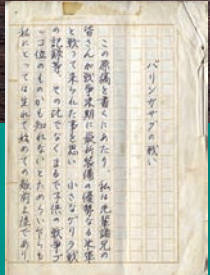 バリンガサグの戦い
この原稿を書くにあたり、私は先輩諸兄の
皆さんが戦争末期に最新装備の優勢なる米軍
と戦って来られた事を思い、小さなゲリラ戦
の記録等、その比でなくまるで子供の戦争ゴ
ッコ位のものかも知れないとためらい乍らも
私にとっては生れて始めての敵前上陸であり